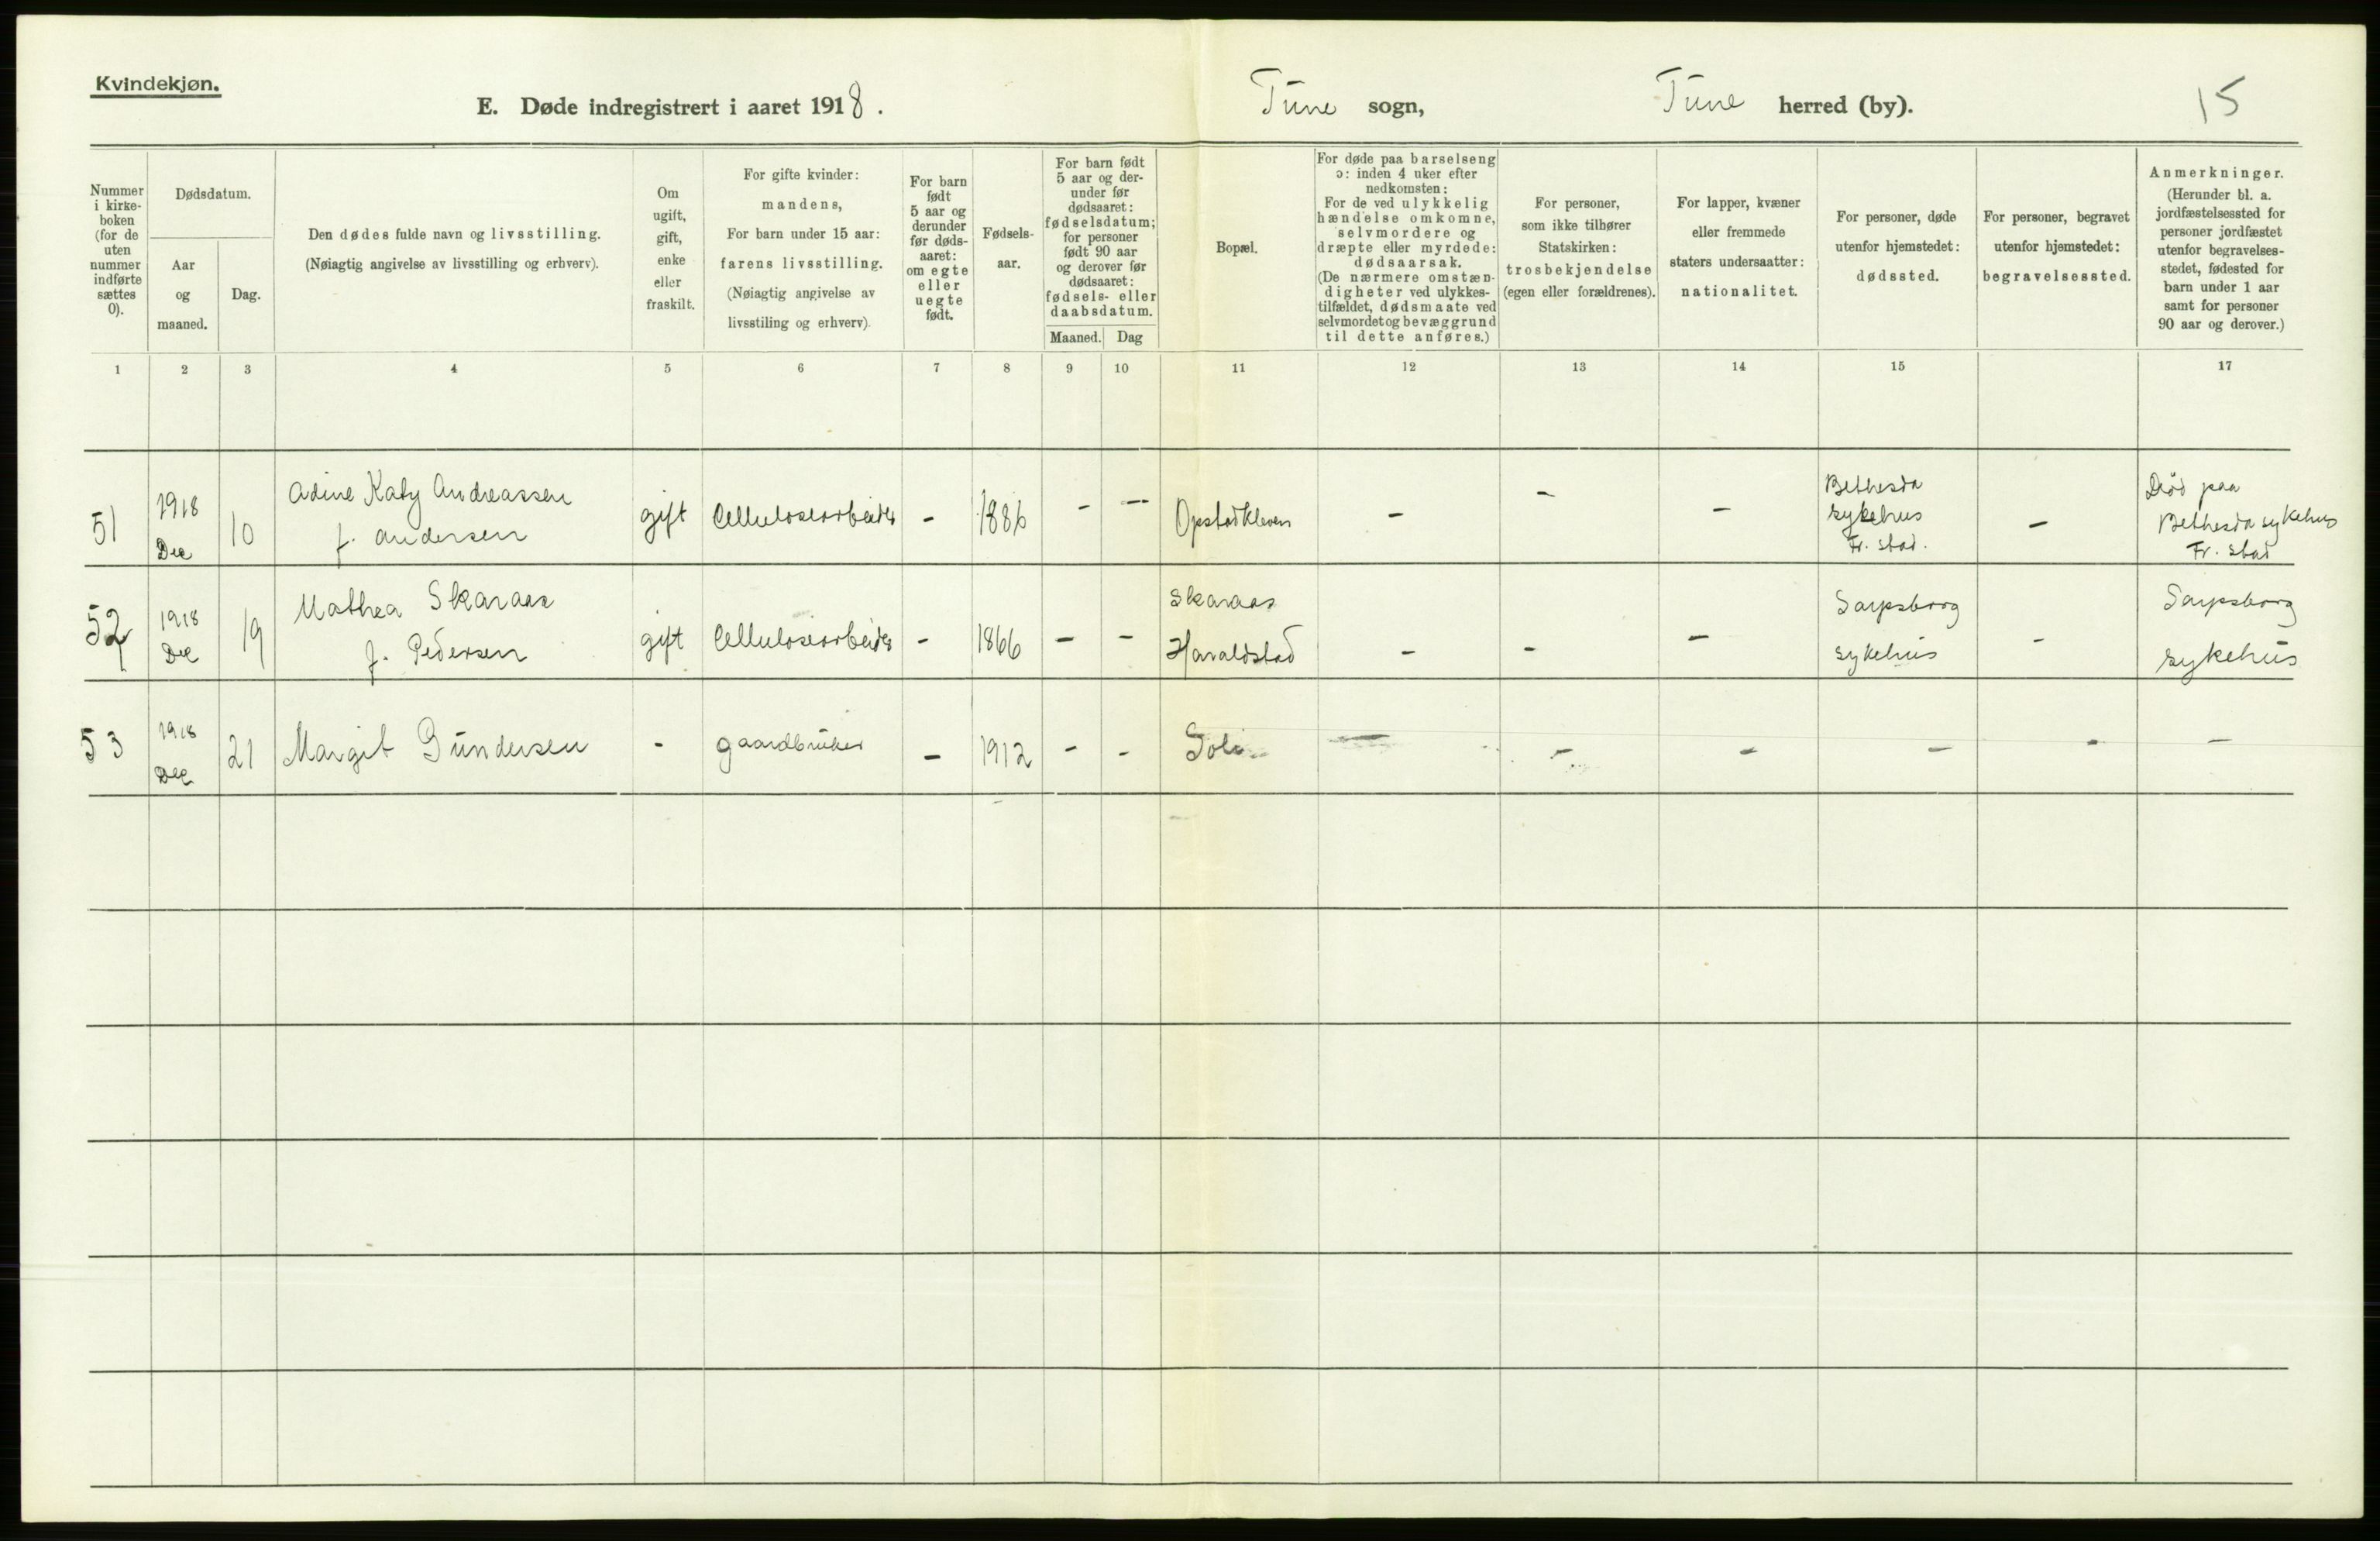 Kvindekjøn.
E. Døde indregistrert i aaret 1918.
Tune sogn,
Tune herred (by).
15
Nummer
i kirke-
boken
(for de
uten
nummer
indførte
sættes
0).
Dødsdatum.
Aar
og
maaned.
Dag.
Den dødes fulde navn og livsstilling.
(Nøiagtig angivelse av livsstilling og erhverv).
Om
ugift,
gift,
enke
eller
fraskilt.
For gifte kvinder:
mandens,
For barn under 15 aar:
farens livsstilling.
(Nøiagtig angivelse av
livsstiling og erhverv).
For barn
født
5 aar og
derunder
før døds-
aaret:
om egte
eller
uegte
født.
Fødsels-
aar.
For barn født
5 aar og der-
under før
dødsaaret:
fødselsdatum;
for personer
født 90 aar
og derover før
dødsaaret:
fødsels- eller
daabsdatum.
Maaned. Dag
Bopæl.
For døde paa barselseng
ɔ: inden 4 uker efter
nedkomsten:
For de ved ulykkelig
hændelse omkomne,
selvmordere og
dræpte eller myrdede:
dødsaarsak.
(De nærmere omstæn-
digheter ved ulykkes-
tilfældet, dødsmaate ved
selvmordet og bevæggrund
til dette anføres.)
For personer,
som ikke tilhører
Statskirken:
trosbekjendelse
(egen eller forældrenes).
For lapper, kvæner
eller fremmede
staters undersaatter:
nationalitet.
For personer, døde
utenfor hjemstedet:
dødssted.
For personer, begravet
utenfor hjemstedet:
begravelsessted.
Anmerkninger.
(Herunder bl. a.
jordfæstelsessted for
personer jordfæstet
utenfor begravelses-
stedet, fødested for
barn under 1 aar
samt for personer
90 aar og derover.)
1 2 3 4 5 6 7 8 9 10 11 12 13 14 15 17
51
1918
Dec
10
Adine Katy Andreassen
f. Andersen
gift
Celluloseorbeider
-
1886
- -
Opstadkleven
- - -
Bethesda
sykehus
Fr. stad.
-
Död paa
Bethesda sykehus
Fr. stad
52
1918
Dec
19
Mathea Skaraas
f. Pedersen
gift
Celluloseorbeider
-
1866
- -
Skaraas
Haraldstad
- - -
Sarpsborg
sykehus
-
Sarpsborg
sykehus
53
1918
Dec
21
Margit Gundersen
-
gaardbruker
-
1912
- -
Soli
- - - - - -